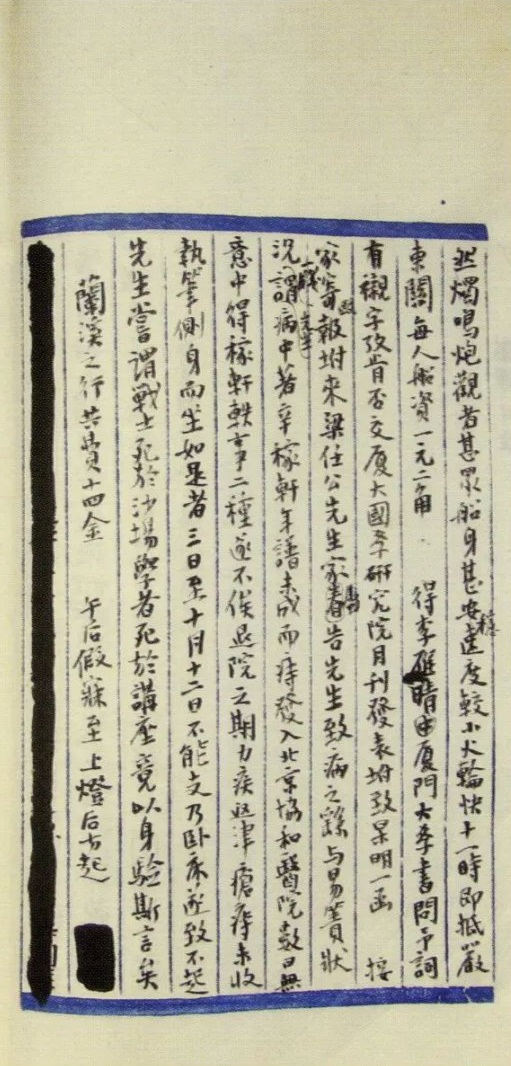 然燭鳴炮觀者甚眾船身甚安穩速度較小火輪快十一時即抵嚴
東關每人船資一元二角　得李雁晴由廈門大學書問予詞
有襯字攷肯否交廈大國學研究院月刊發表坿致杲明一函　接
家寄報坿來梁任公先生家屬告先生致病之繇与易簀狀
況謂病中著辛稼軒年譜未成而痔發入北京協和醫院數日無
意中得稼軒軼事二種遂不俟退院之期力疾返津瘡痔未收
執筆側身而坐如是者三日至十月十二日不能支乃卧床遂致不起
先生嘗謂戰士死於沙場學者死於講座竟以身驗斯言矣
蘭溪之行共費十四金　午后假寐至上燈后方起